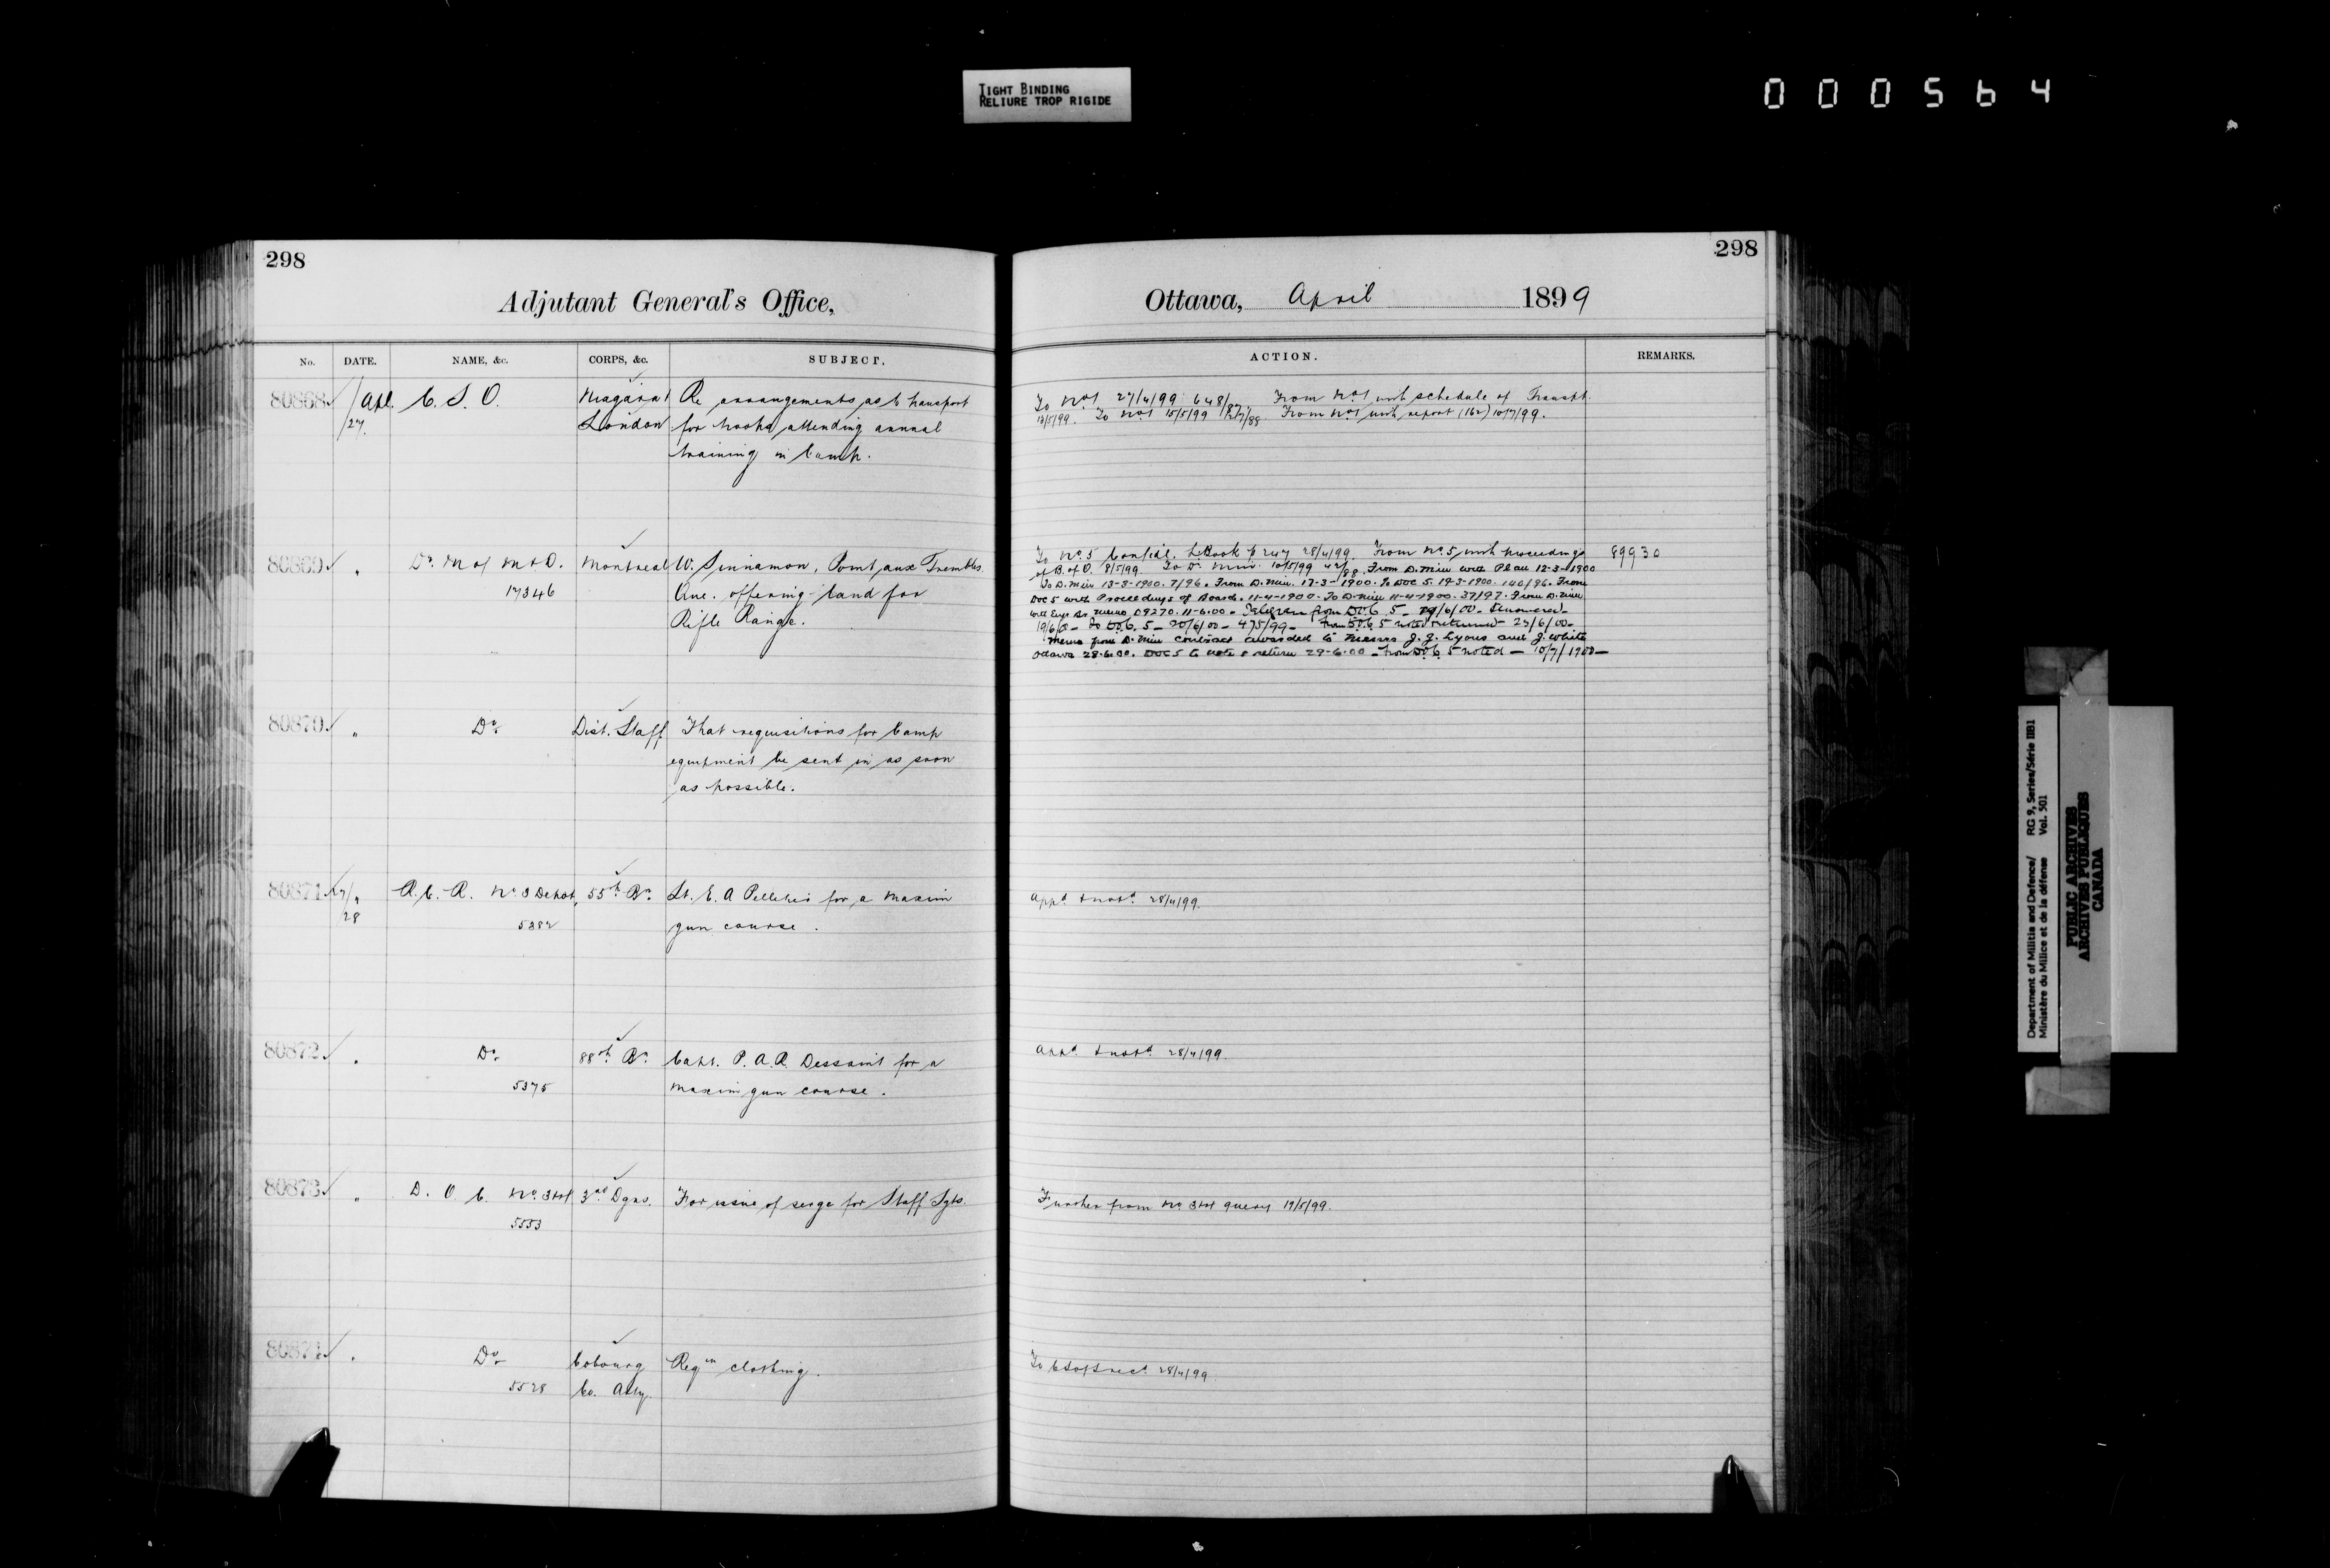 TIGHT BINDING
RELIURE TROP RIGIDE
000564
298
Adjutant General's Office,
No. DATE. NAME, &c. CORPS, &c. SUBJECT.
80868 Apl. 27. C. S. O. Niagara & London Re arrangements as to transport
for troops attending annual
training in Camp.
80869 " Dr. M of M & D. Montreal W. Sinnamon, Point aux Trembles
17346 Que. offering land for
Rifle Range.
80870 " Do Dist. Staff That requisitions for Camp
equipment be sent in as soon
as possible.
80871 27/28 R. C. R. No 3 Depot, 55th Bn. Lt. E. A Pelletier for a maxim
5382 gun course.
80872 " Do 88th Bn. Capt. P. A. R. Dessaint for a
5375 maxim gun course.
80873 " D. O. C. No 3&4 3rd Dgns. For issue of serge for Staff Sgts.
5553
80874 " Do Cobourg Reqn clothing.
5528 Co. Arty.
298
Ottawa, April 1899
ACTION. REMARKS.
To No 1 27/4/99 648/ From No 1 with schedule of Transpt.
13/5/99. To No 1 15/5/99 From No 1 with report (162) 10/7/99.
To No. 5 Confidl. L. Book p 247 28/4/99. From No 5 with proceedings 89930
of B. of O. 8/5/99 To D. Min. 10/5/99 42/88. From D. Min with Plan 12-3-1900
To D. Min 13-3-1900. 7/96. From D. Min. 17-3-1900. To DOC 5. 19-3-1900. 140/96. From
DOC 5 with Proceedings of Board. 11-4-1900. To D. Min 11-4-1900. 37/97. From D. Min
with Engr Br memo D9270. 11-6-00. Telegram from D.O.C. 5 - 19/6/00 -
19/6/00 - To D.O.C. 5 - 20/6/00 - 475/99 - From D.O.C. 5 noted returned - 23/6/00 -
Memo from D. Min contract awarded to Messrs J. J. Lyons and J. White
Ottawa 28-6-00. DOC 5 to note & return 29-6-00 - From D.O.C. 5 noted - 10/7/1900 -
Appd & notd 28/4/99.
Appd & notd 28/4/99.
Further from No 3&4 query 19/5/99.
To C S of S 28/4/99.
Department of Militia and Defence/ RG 9, Series/Série IIB1
Ministère du Milice et de la défense Vol. 501
PUBLIC ARCHIVES
ARCHIVES PUBLIQUES
CANADA